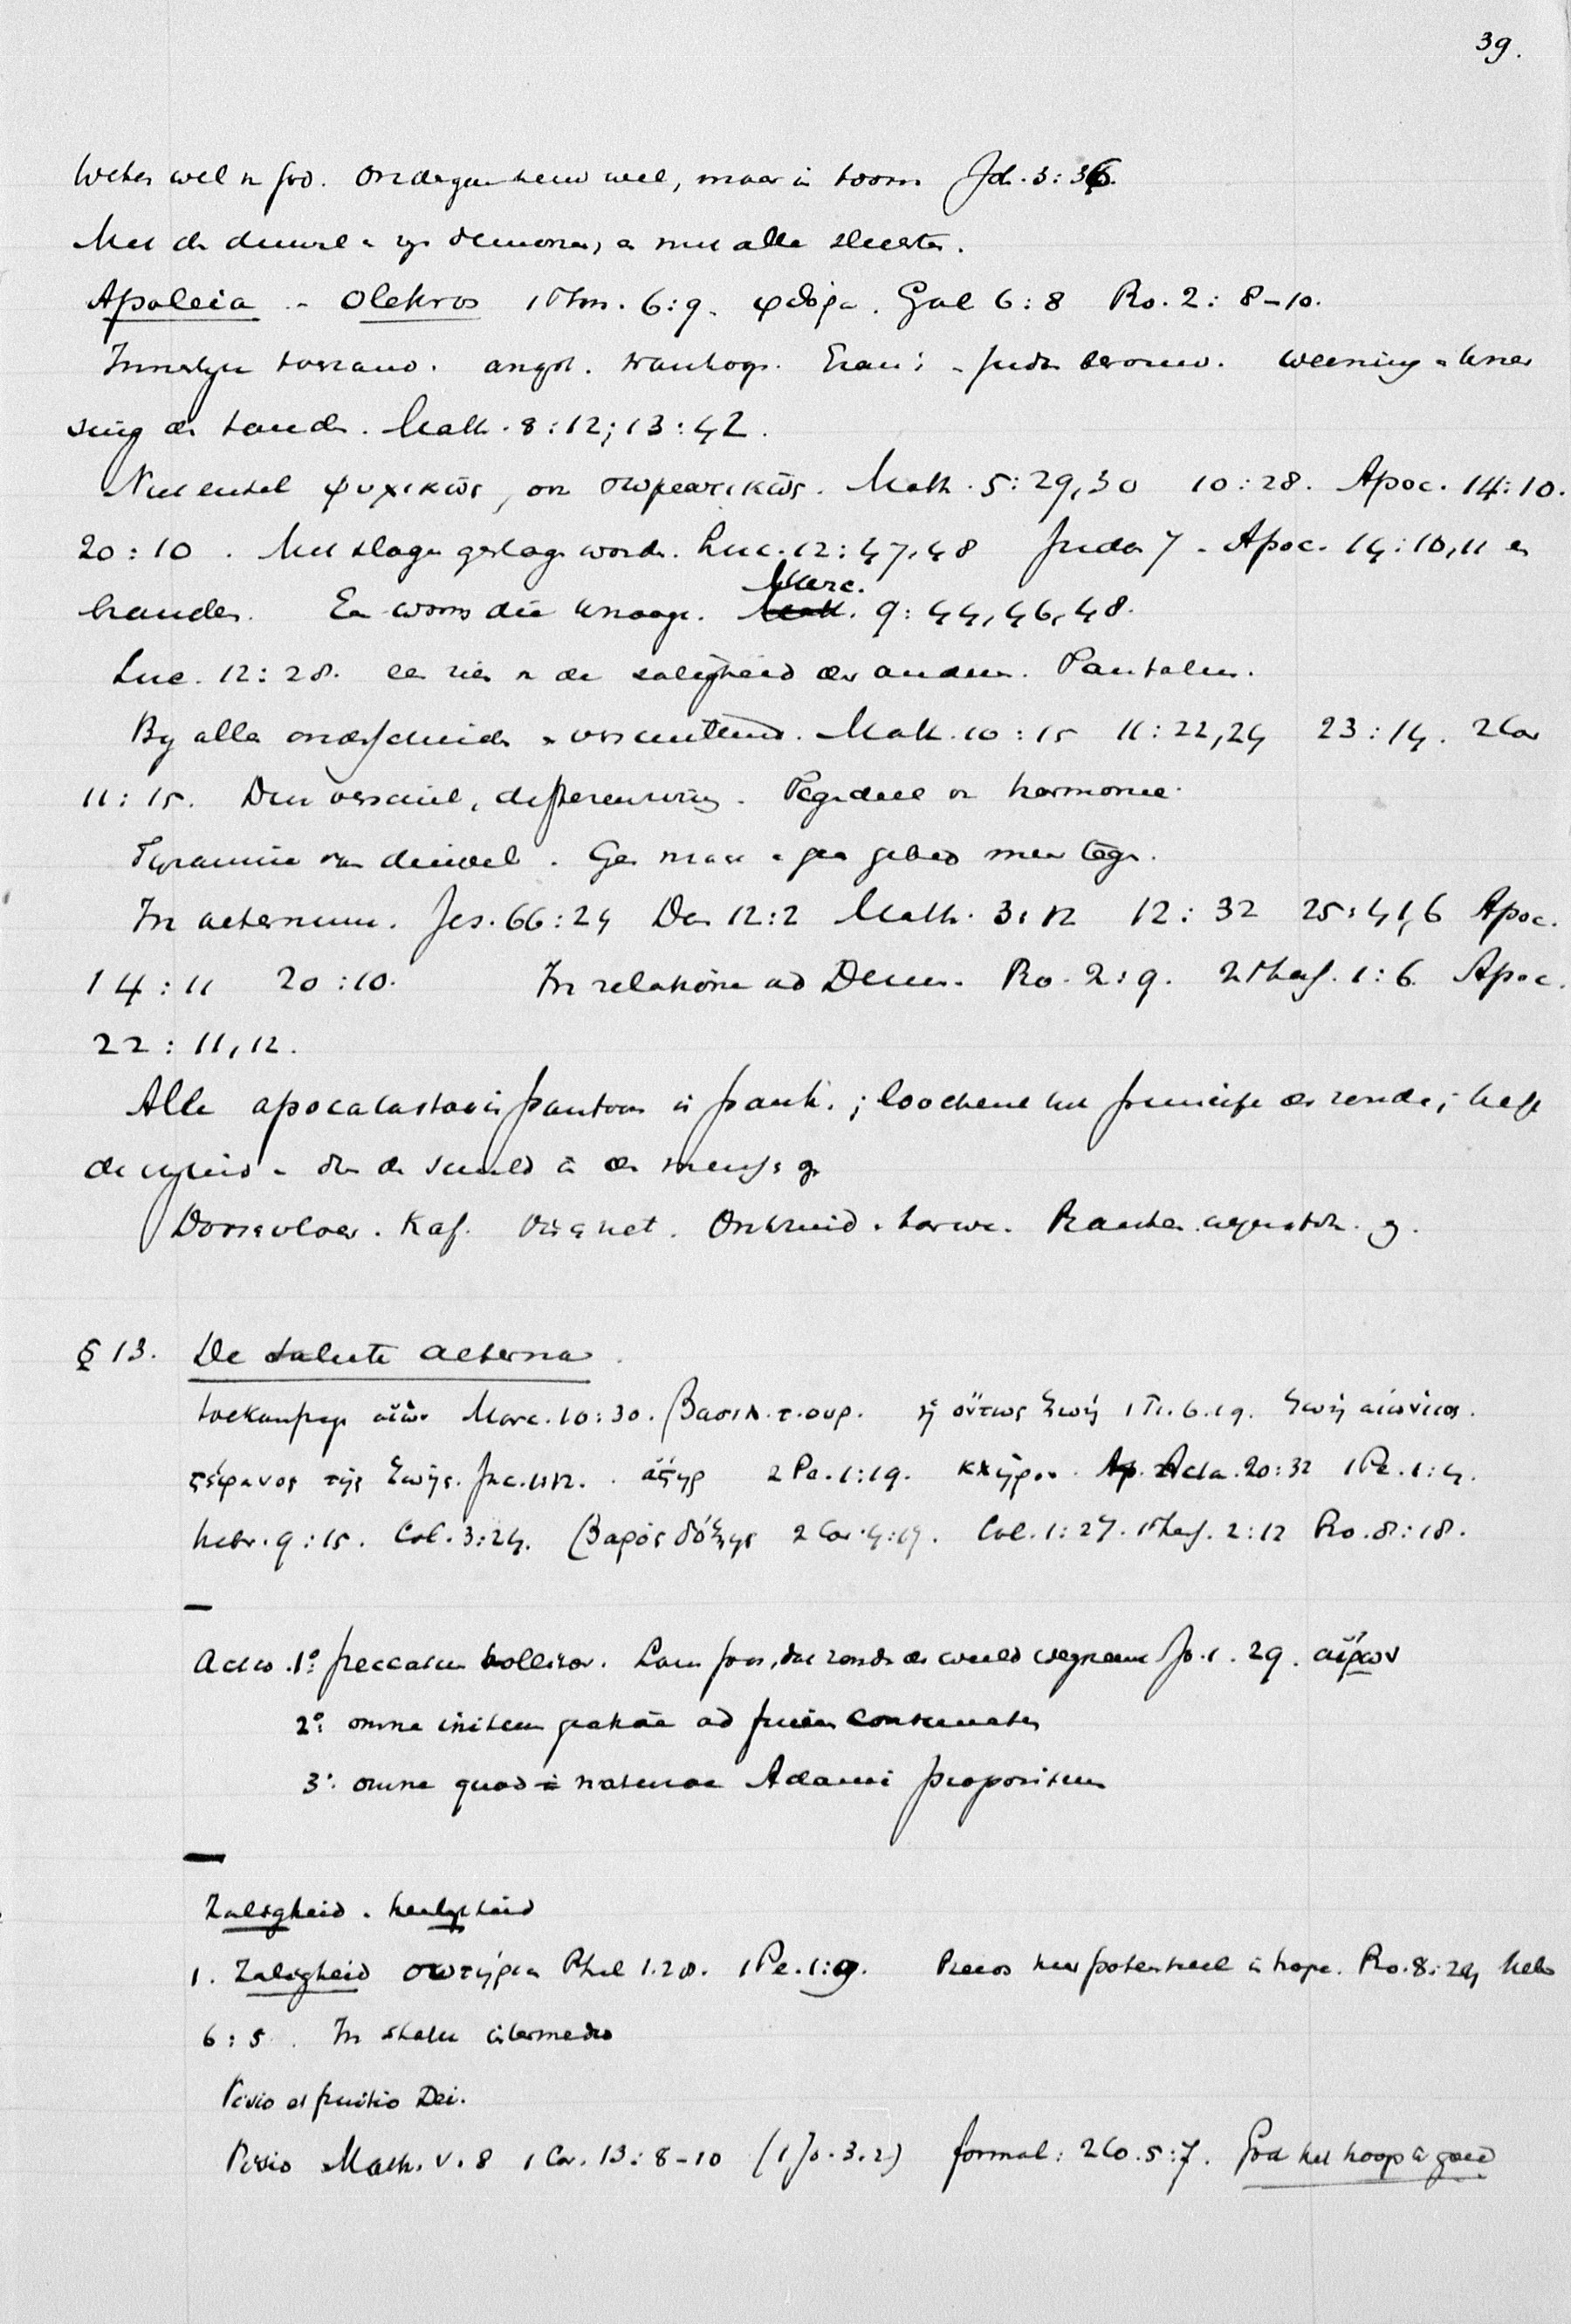 39.
weten wel v. God. Ondergaan hem wel, maar in toorn Joh. 3:36.
Met de duivel en zijn demonen, en met alle slechten.
Apoleia - Olethros 1 Thm. 6:9. φθόρα. Gal 6:8 Ro. 2: 8-10.
Innerlyke toestand. angst. wanhoop. Ezau; - Juda berouw. weening en kners
sing der tanden. Math. 8:12; 13:42.
Niet enkel ψυχικῶς, ook σωματικῶς. Math. 5:29,30 10:28. Apoc. 14:10.
20:10. Met slagen geslagen worden. Luc. 12:47,48 Juda 7 - Apoc. 14:10,11 en
branden. Een worm die knaagt. Marc. 9:44,46,48.
Luc. 12:28. een zien v. de zaligheid der anderen. Tantalus.
By alle onderscheiden en verschillend. Math. 10:15 11:22,24 23:14. 2 Cor
11:15. Dus verschil, differentiering. Tegendeel van harmonie.
Tyrannie van duivel. Geen macht en geen gebed meer tegen.
In aeternum. Jes. 66:24 Dan 12:2 Math. 3:12 12:32 25:41,6 Apoc.
14:11 20:10. In relatione ad Deum. Ro. 2:9. 2 Thess. 1:6. Apoc.
22:11,12.
Alle apocatastasis panton is panth.; loochent het principe der zonde; heft
de vrijheid en dus de schuld in de mensch op
Dorschvloer. Kaf. Vischnet. Onkruid en tarwe.
§ 13. De salute aeterna.
toekomstige αἰών Marc. 10:30. βασιλ. τ. ουρ. ἡ ὄντως ζωή 1 Ti. 6.19. ζωή αἰώνιος.
στέφανος τῆς ζωῆς. Jac. 1:12. ἀστήρ 2 Pe. 1:19. κλῆρος. Acta. 20:32 1 Pe. 1:4.
hebr. 9:15. Col. 3:24. βαρός δόξης 2 Cor. 4:17. Col. 1:27. 1 Thess. 2:12 Ro. 8:18.
—
Actio. 1º: peccatum tollitur. Lam Gods, dat zonde der wereld wegneemt Jo. 1. 29. αἴρων
2º: omne initium gratiae ad finem consummatur
3º: omne quod naturae Adami propositum
—
Zaligheid. heerlykheid
1. Zaligheid σωτηρία Phil 1.28. 1 Pe. 1:9. Reeds hier potentieel in hope. Ro. 8:24 hebr
6:5. In statu intermedio
Visio et fruitio Dei.
Visio Math. V. 8 1 Cor. 13:8-10 (1 Jo. 3.2) formal: 2 Co. 5:7. God het hoogste goed